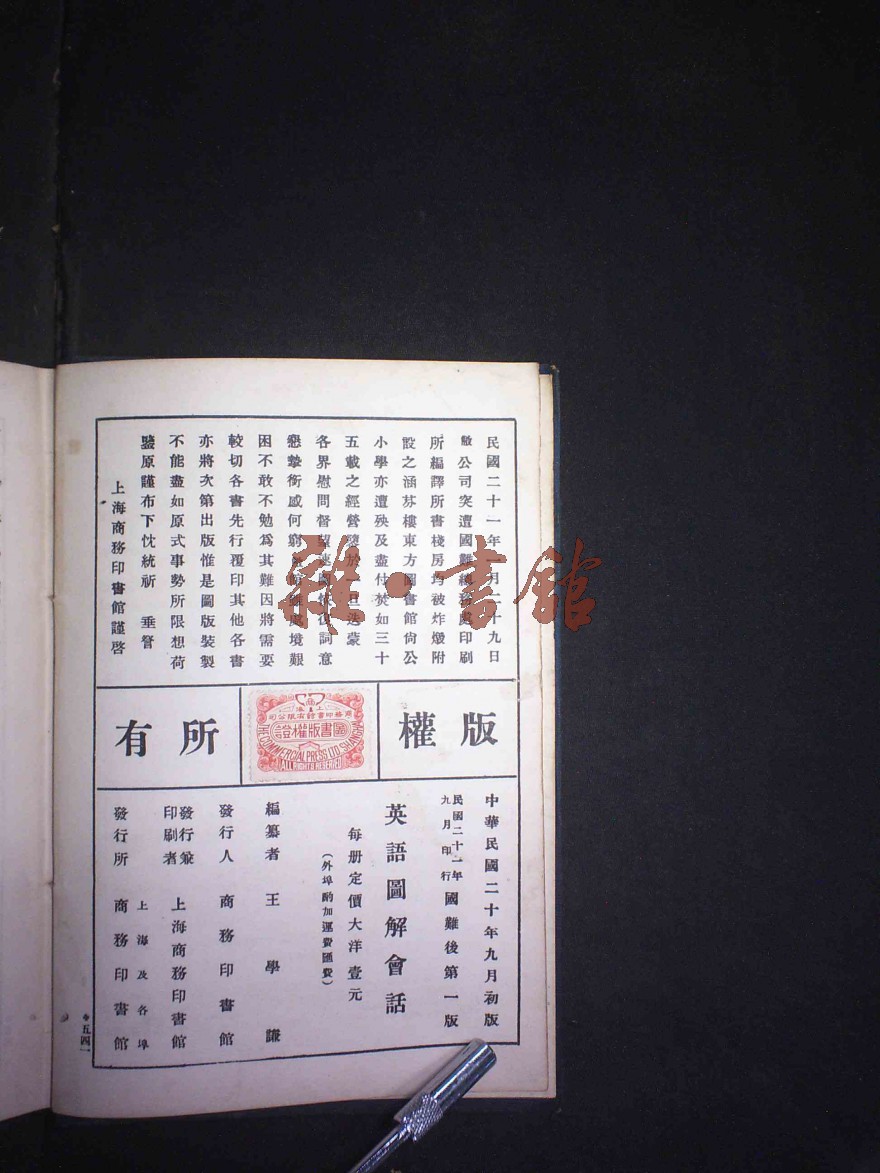 民國二十一年一月二十九日
敝公司突遭國難總務處印刷
所編譯所書棧房均被炸燬附
設之涵芬樓東方圖書館尙公
小學亦遭殃及盡付焚如三十
五載之經營隳於一旦迭蒙
各界慰問督望速圖恢復詞意
懇摯銜感何窮敝館雖處境艱
困不敢不勉爲其難因將需要
較切各書先行覆印其他各書
亦將次第出版惟是圖版裝製
不能盡如原式事勢所限想荷
鑒原謹布下忱統祈 垂詧
上海商務印書館謹啓
版權
所有
上海
商務印書館有限公司
圖書版權證
THE COMMERCIAL PRESS LTD SHANGHAI
ALL RIGHTS RESERVED
中華民國二十年九月初版
民國二十一年九月印行 國難後第一版
英語圖解會話
每册定價大洋壹元
(外埠酌加運費匯費)
編纂者 王學謙
發行人 商務印書館
發行兼印刷者 上海商務印書館
發行所 上海及各埠 商務印書館
五四一
雜·書館